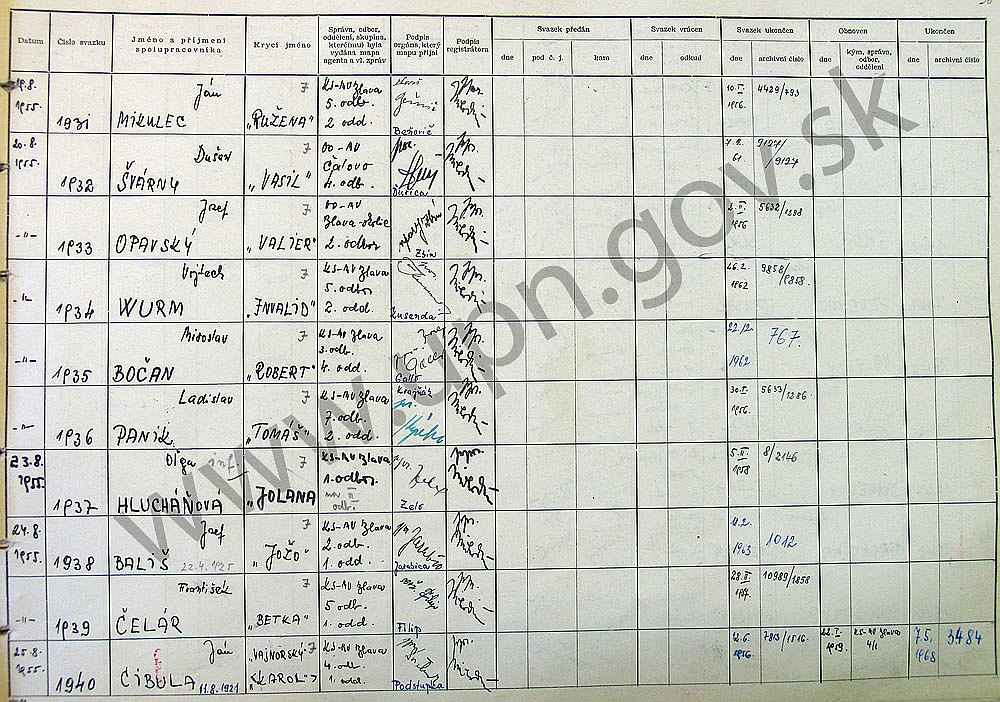 Datum
Číslo svazku
Jméno a příjmení
spolupracovníka
Krycí jméno
Správa, odbor,
oddělení, skupina,
kterému) byla
vydána mapa
agenta a vl. zpráv
Podpis
orgána, který
mapu přijal
Podpis
registrátora
Svazek předán
dne
pod č. j.
kam
Svazek vrácen
dne
odkud
Svazek ukončen
dne
archivní číslo
Obnoven
dne
kým, správa,
odbor,
oddělení
Ukončen
dne
archivní číslo
19.8.
1955.
1931
Ján
MIKULEC
7
"RUŽENA"
KS-AV Blava
5. odb.
2 odd.
10. II.
1956.
4429/793
20.8.
1955.
1932
Dušan
ŠVÁRNY
7
"VASIL"
OO-AV
Čalovo
4. odb.
Ďurica
7. 2.
61.
9127/
9127
-"-
1933
Jozef
OPAVSKÝ
7
"VALIER"
OO-AV
Blava-okolie
2. odbor
Zbín
2. II.
1956
5632/1298
-"-
1934
Vojtech
WURM
7
"INVALID"
KS-AV Blava
5. odbor
2. odd.
Kusenda
26. 2.
1962
9858/
9858.
-"-
1935
Miroslav
BOČAN
7
"ROBERT"
KS-AV Blava
3. odb.
4. odd.
Gallo
22. 12.
1962
767.
-"-
1936
Ladislav
PANIK
7
"TOMÁŠ"
KS-AV Blava
7. odb.
2. odd.
Krajňák
30. II.
1956.
5633/1286.
23.8.
1955.
1937
Oľga
inf.
HLUCHÁŇOVÁ
7
"JOLANA
KS-AV Blava
1. odbor
II
odb.
Zelo
5. II.
1958
8/2146
24.8.
1955.
1938
Jozef
BALIŠ
22.4.1925
7
"JOŽO"
KS-AV Blava
2. odb.
1. odd.
Jarabica
1963
1012
-"-
1939
František
ČELÁR
7
"BETKA"
KS-AV Blava
5 odb.
1. odd.
Filip
28. II.
10989/1858
25.8.
1955.
1940
Ján
CIBULA
11.8.1921
"VAJNORSKÝ 7
"KAROL"
KS-AV Blava
4. odb.
1. odd.
Podstupka
2. 6.
1956.
7813/1516.
22. I.
1959.
KS-AV Blava
4/1
7.5.
1968
3484
www.upn.gov.sk